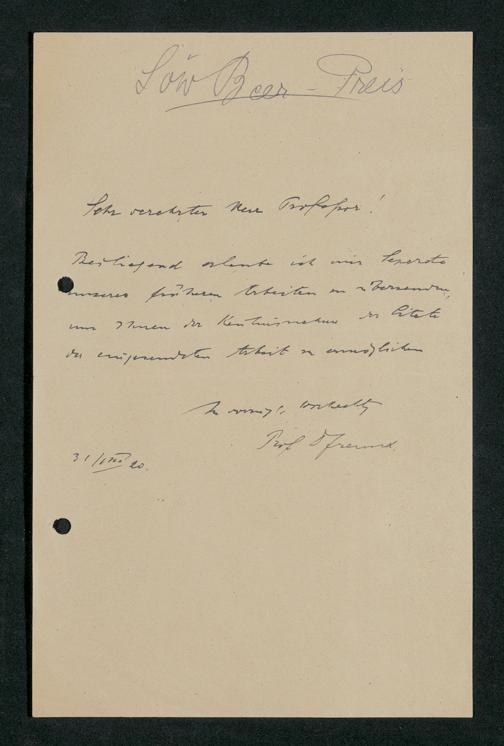 Löw Beer - Preis
Sehr verehrter Herr Professor!
Beiliegend erlaube ich mir Separata
unserer früheren Arbeiten zu übersenden,
um Ihnen die Kenntnisnahme der Citate
der eingesendeten Arbeit zu ermöglichen
In vorzügl. Hochachtg
Prof Dr Freund
31/VIII 20.